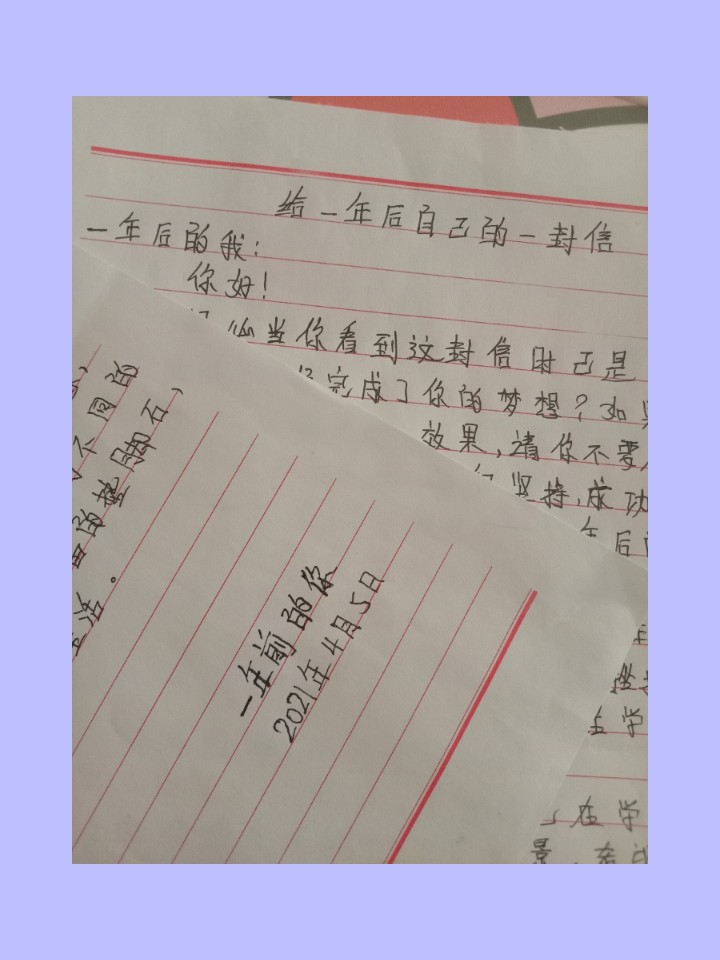 给一年后自己的一封信
一年后的我:
你好!
当你看到这封信时已是
完成了你的梦想?如
效果,请你不要
坚持,成功
年后
学
,在学
景,
不同的
的垫脚石,
活。
一年前的你
2021年4月5日